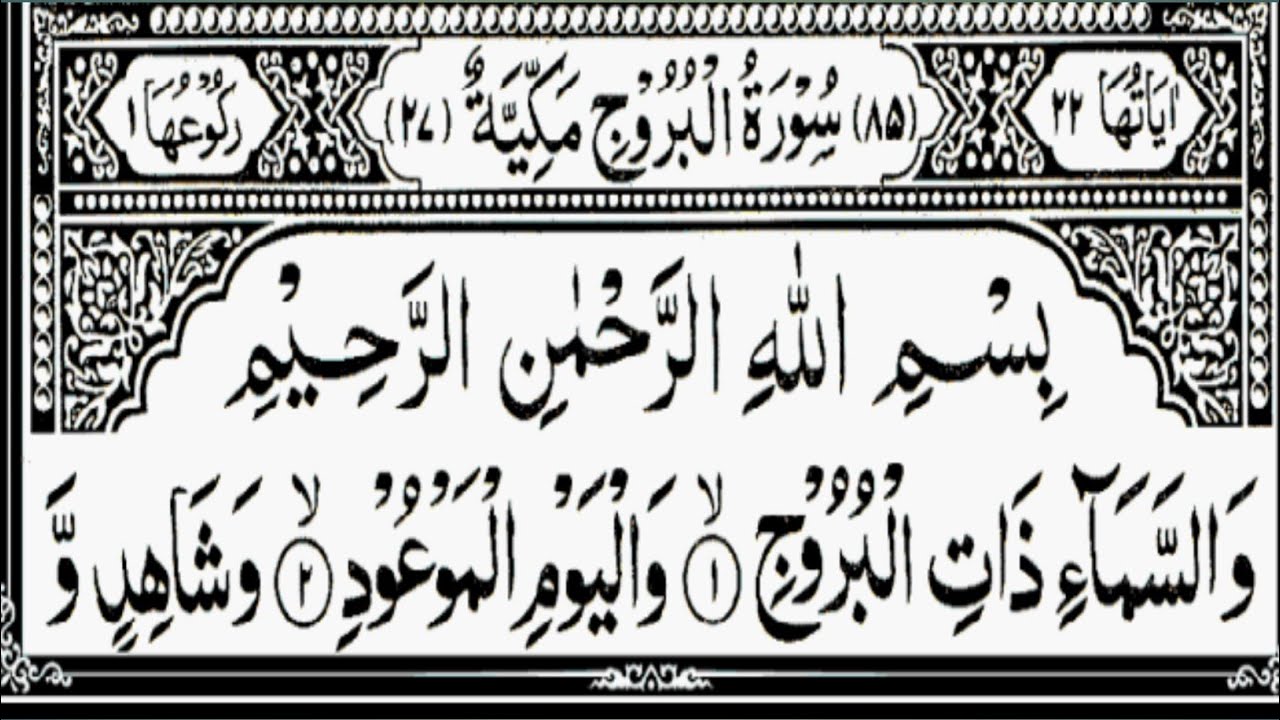 اٰيَاتُهَا ٢٢ (٨٥) سُوْرَةُ الْبُرُوْجِ مَكِّيَّةٌ (٢٧) رُكُوْعُهَا ١
بِسْمِ اللّٰهِ الرَّحْمٰنِ الرَّحِيْمِ
وَالسَّمَآءِ ذَاتِ الْبُرُوْجِ ۙ﴿١﴾ وَالْيَوْمِ الْمَوْعُوْدِ ۙ﴿٢﴾ وَشَاهِدٍ وَّ